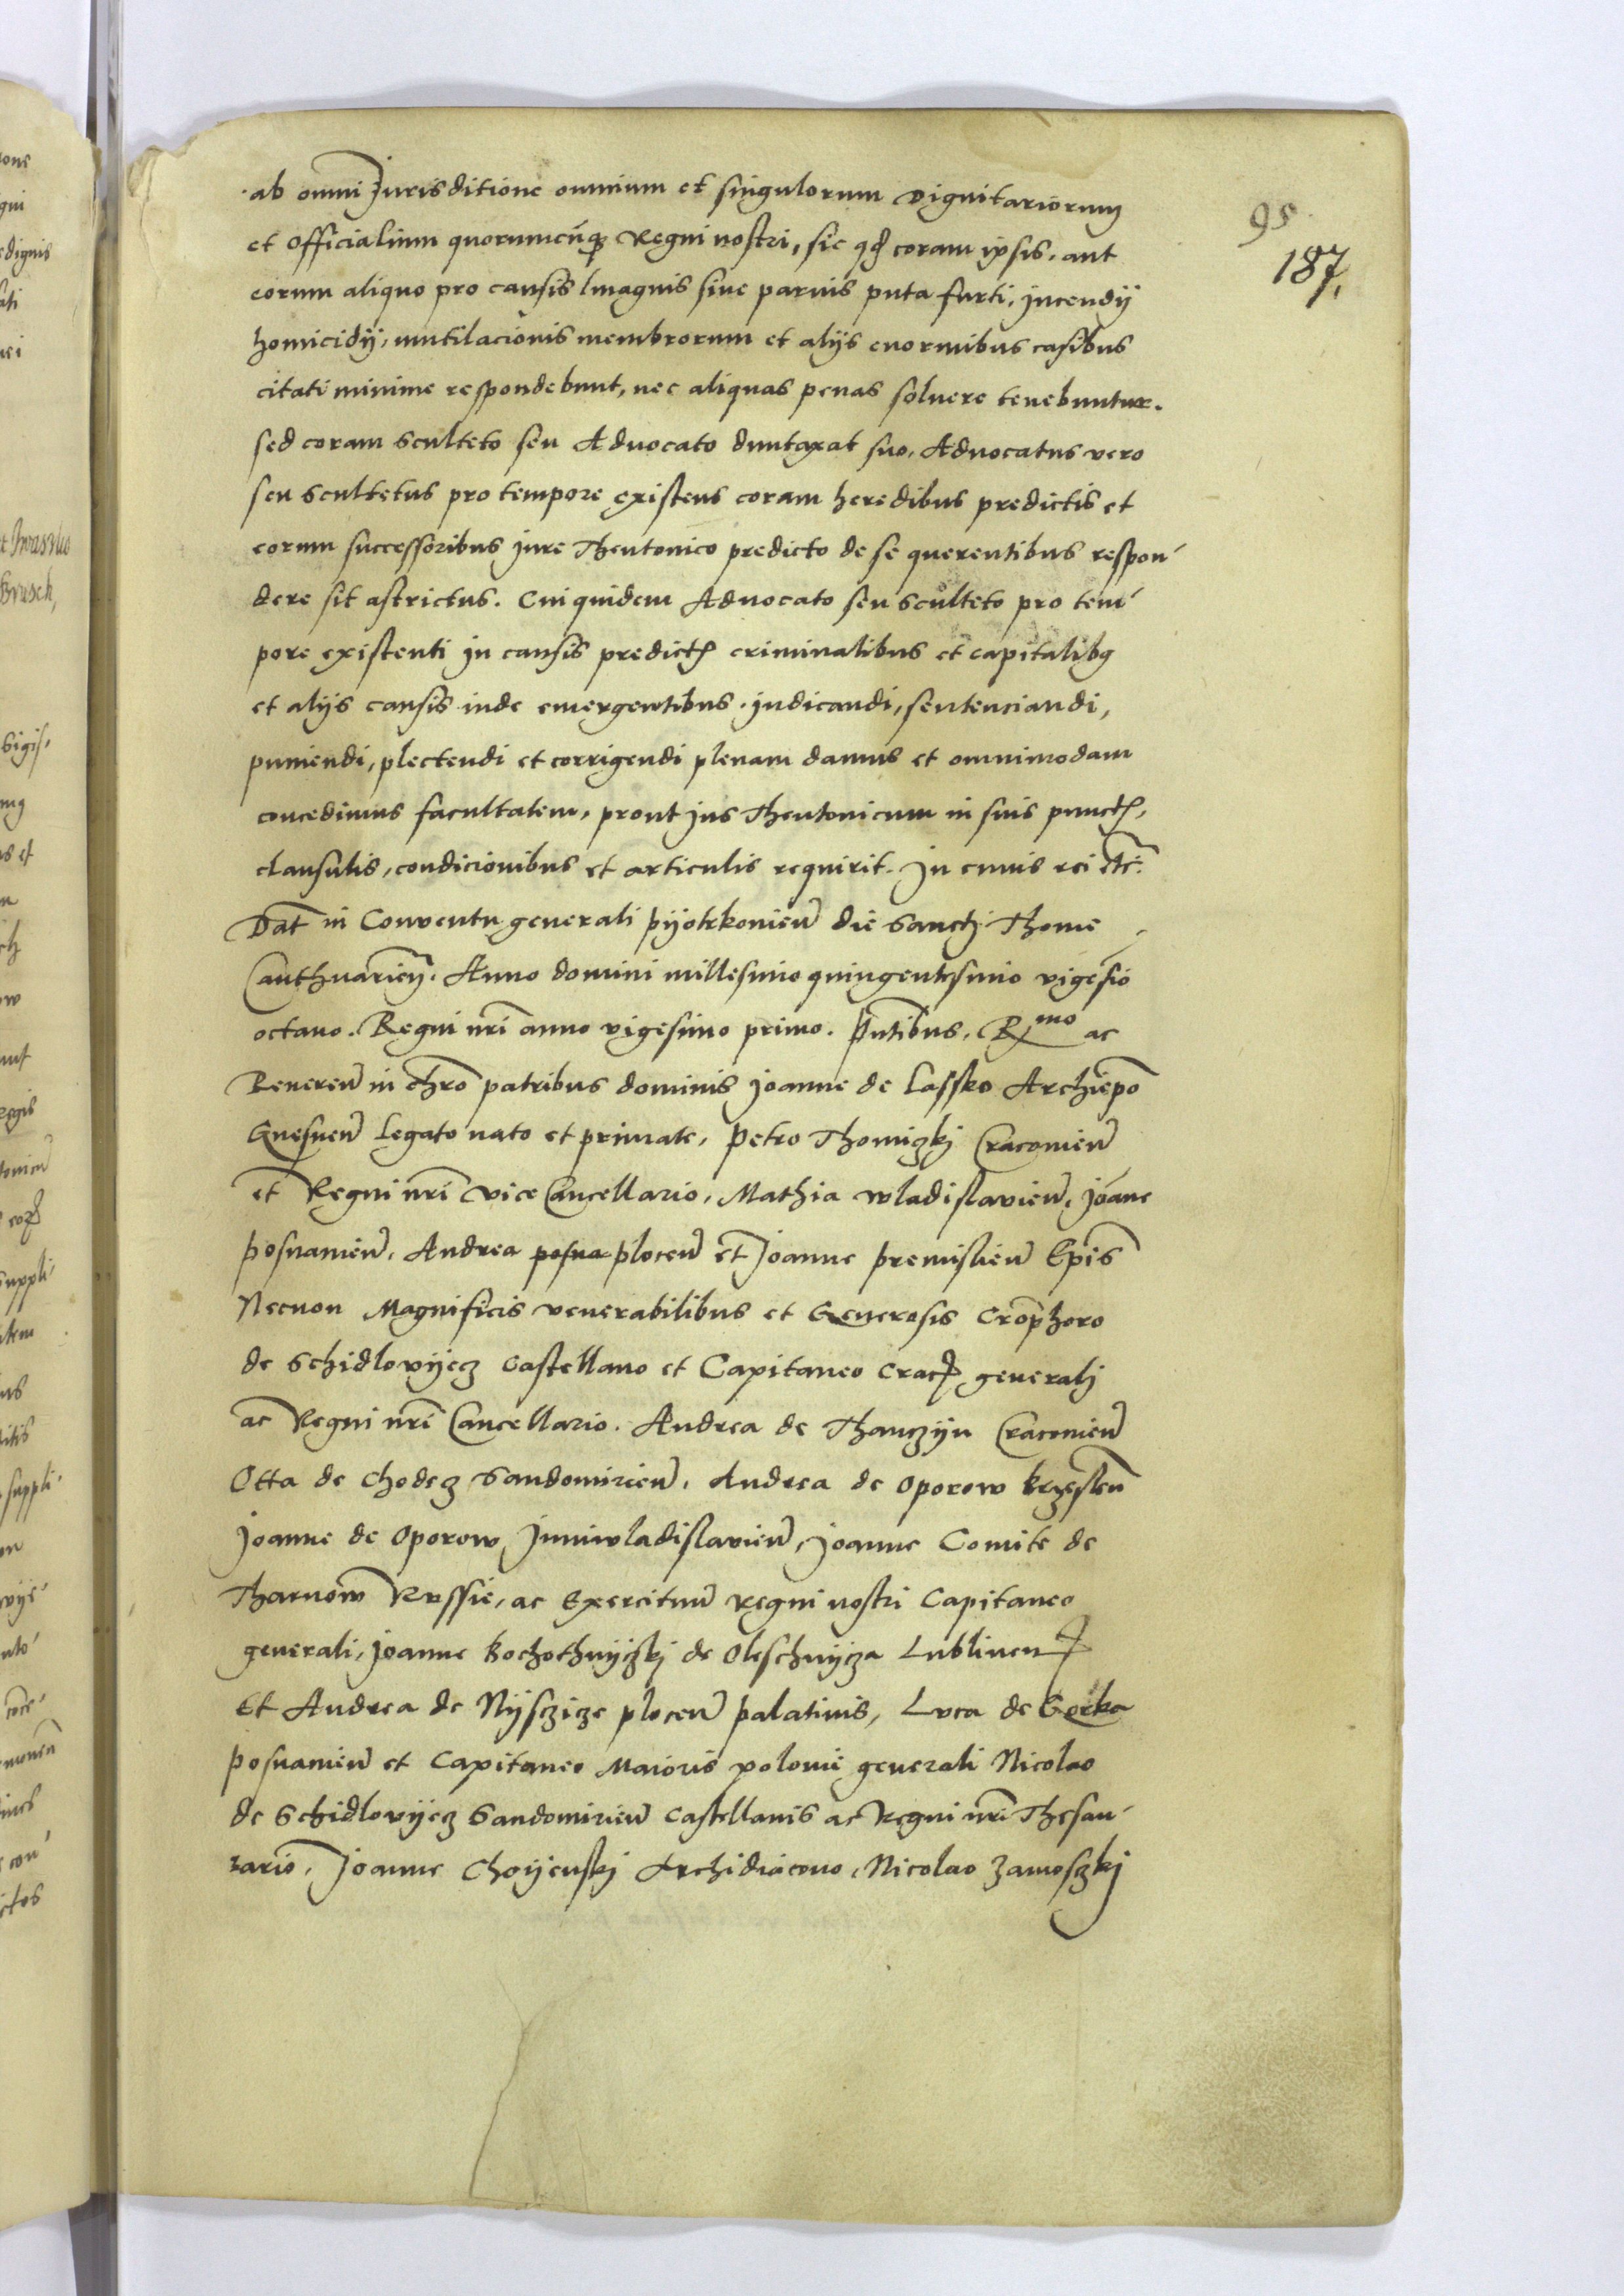 95
187,
ab omni Jurisditione omnium et singulorum Dignitariorum
et Officialium quorumcunq Regni nostri, sic qd coram ipsis, aut
eorum aliquo pro causis magnis siue paruis puta furti, Jncendij
homicidij, mutilacionis membrorum et alijs enormibus casibus
citati minime respondebunt, nec aliquas penas soluere tenebuntur.
sed coram Sculteto seu Aduocato duntaxat suo, Aduocatus vero
seu Scultetus pro tempore existens coram heredibus predictis et
eorum successoribus Jure Theutonico predicto de se querentibus respon-
dere sit astrictus. Cui quidem Aduocato seu Sculteto pro tem-
pore existenti in causis predict criminalibus et capitalibq
et alijs causis inde emergentibus. Judicandi, sentenciandi,
puniendi, plectendi et corrigendi plenam damus et omnimodam
concedimus facultatem, prout Jus Theutonicum in suis punct,
clausulis, condicionibus et articulis requirit. Jn cuius rei etc:
Dat in Conventu generali pijotrkonien die Sanctj Thome
Canthuarien. Anno domini millesimo quingentesimo vigesio
octauo. Regni nri anno vigesimo primo. Pntibus. Rmo ac
Reueren in chro patribus dominis Joanne de Lassko Archiepo
Gnesnen Legato nato et primate, Petro Thomiczkj Cracouien
et Regni nri vice Cancellario, Mathia wladislauien, Joane
posnanien, Andrea posna plocen et Joanne premislien Epis
Necnon Magnificis venerabilibus et Generosis Crophoro
de Schidlovijecz Castellano et Capitaneo Crac generalj
ac Regni nri Cancellario. Andrea de Thanczijn Cracouien
Otta de Chodecz Sandomirien, Andrea de Oporow brzesten
Joanne de Oporow Juniwladislauien, Joanne Comite de
Tharnow Russie, ac Exercituu regni nostri Capitaneo
generali, Joanne Kochothnijczkj de Oleschnijcza Lublinen
Et Andrea de Nijsczicze plocen palatinis, Luca de Gorka
posnanien et Capitaneo Maioris polonie generali Nicolao
de Schidlovijecz Sandomirien Castellanis ac Regni nri Thesau-
rario, Joanne Choijenskj Archidiacono, Nicolao Zamosczkj